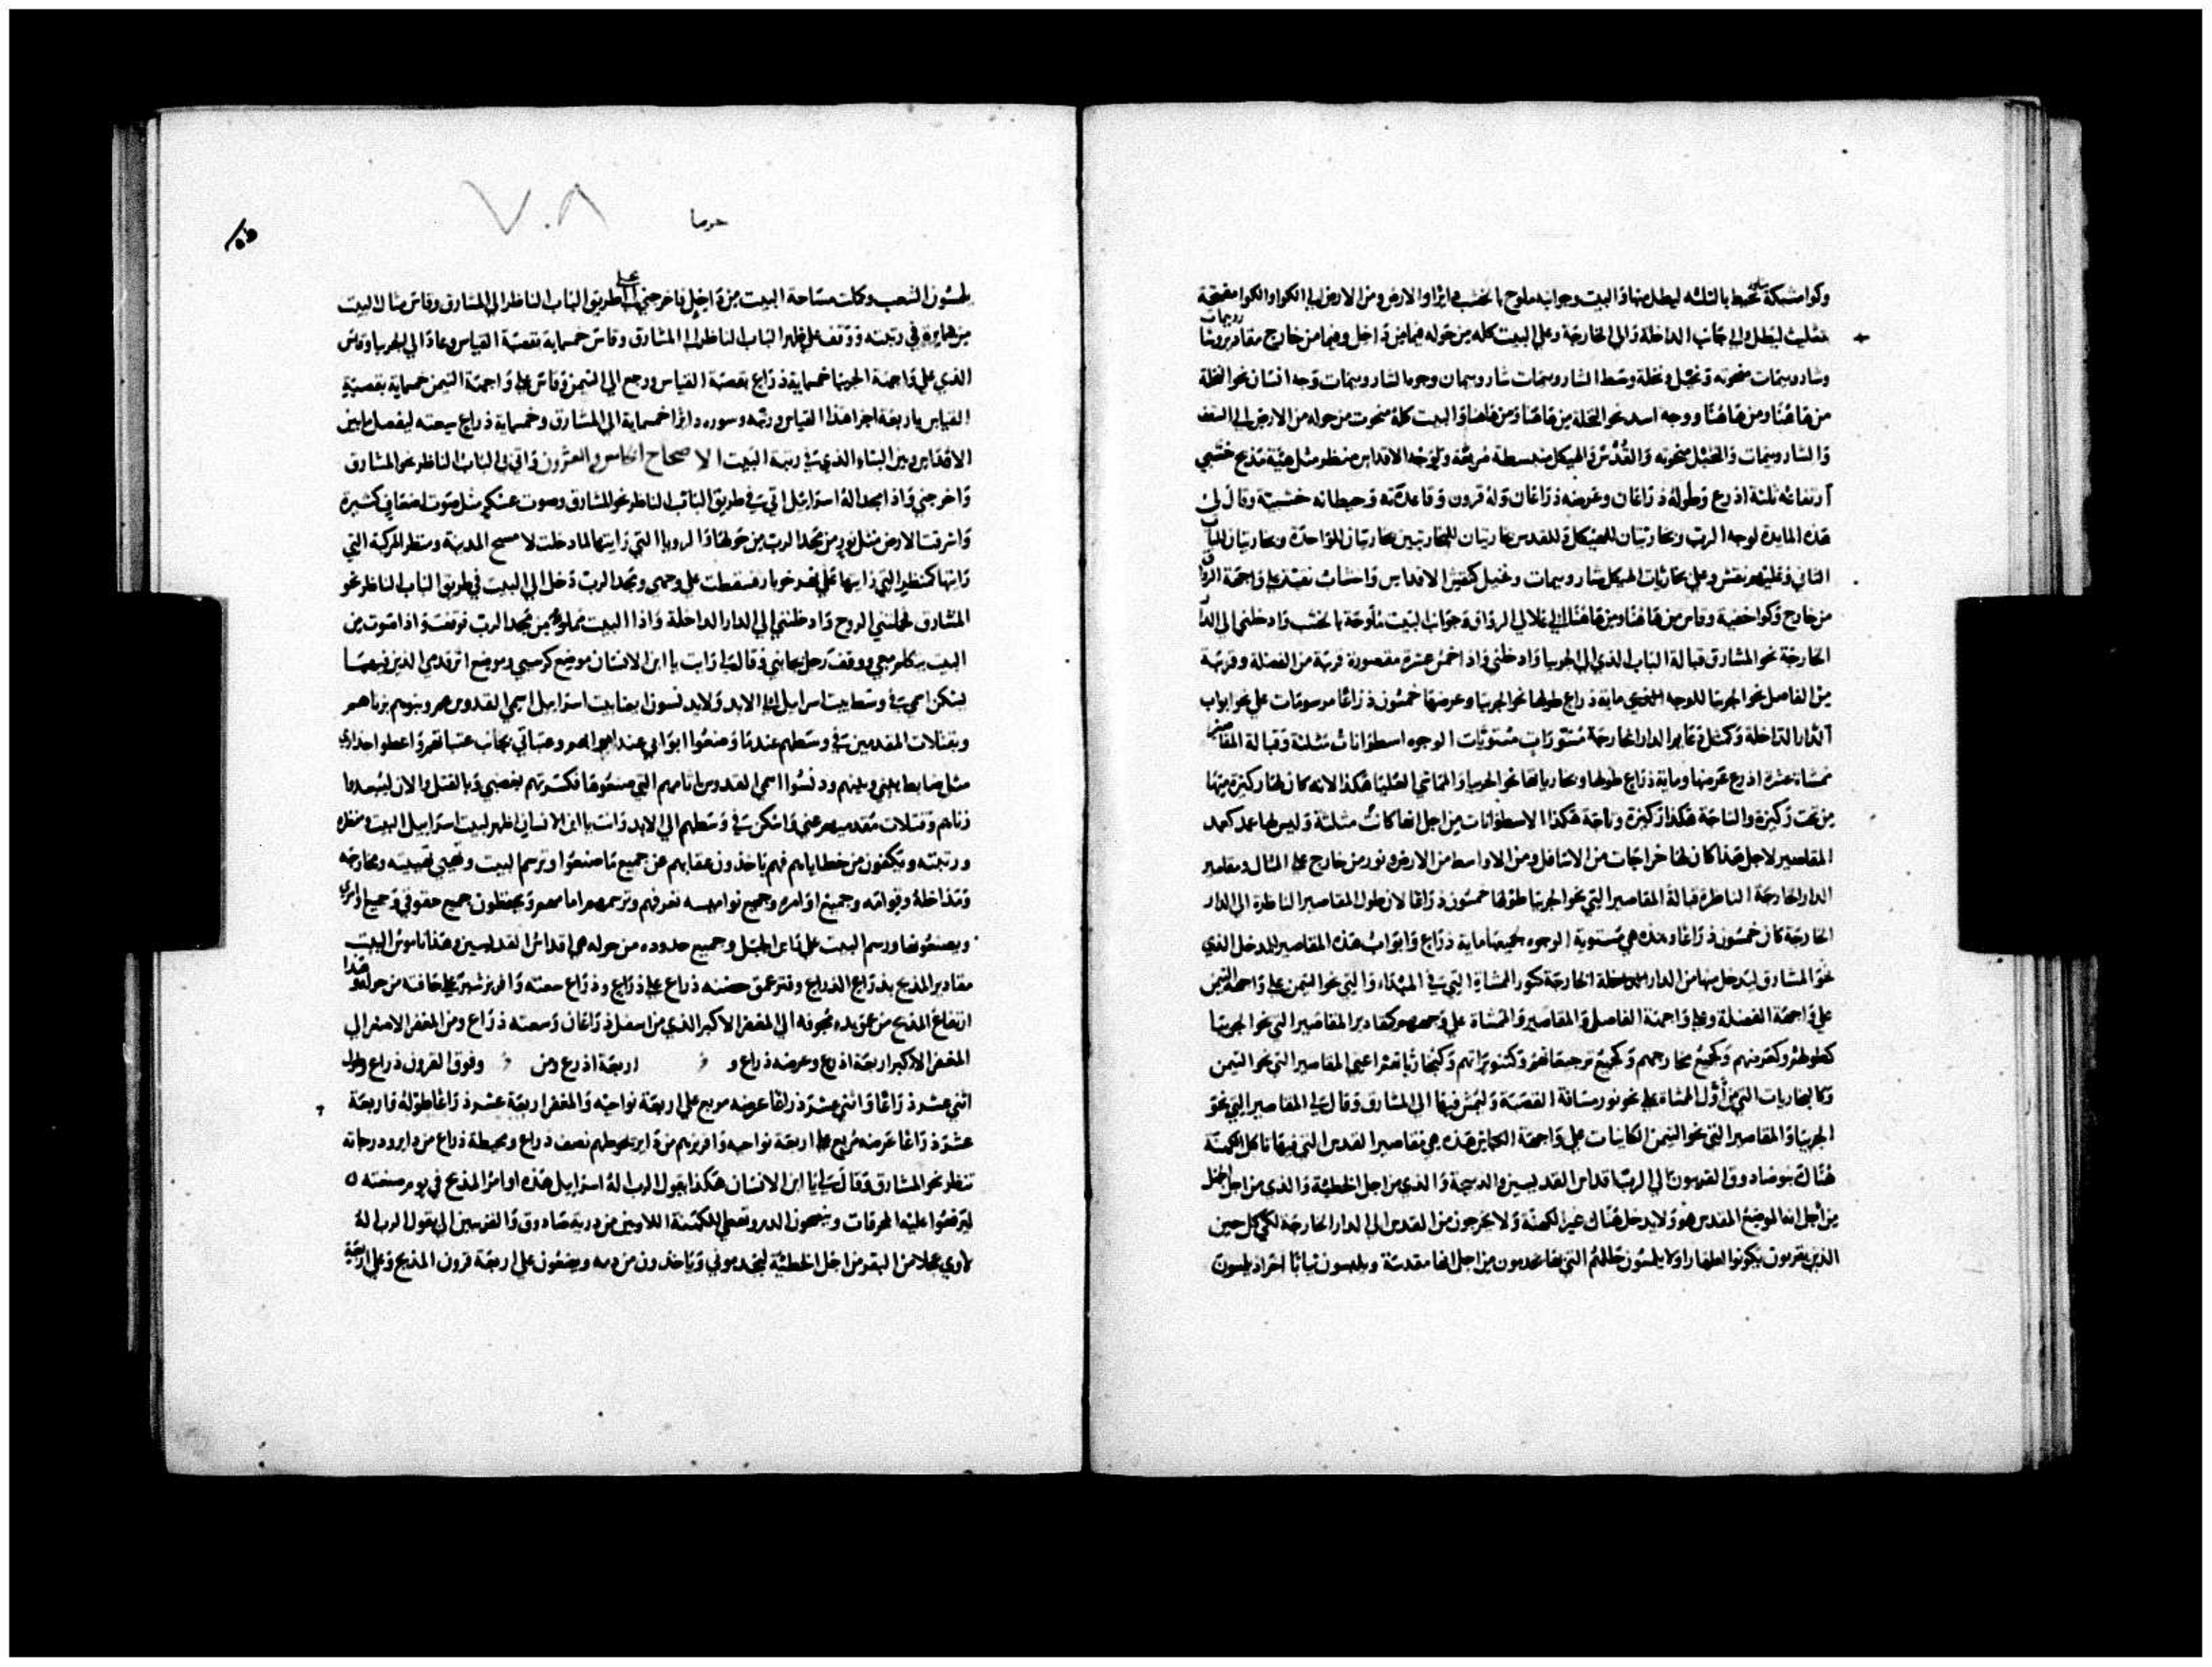 وكوا مشبكة تحيط بالثلثه ليطل منها والبيت وجوانبه ملوح بالخشب دايرا والارض ومن الارض الي الكوا والكوا مفتحة
مثلثة ليطل والي جانب الداخلة والي الخارجة وعلي البيت كله من حوله فيما من داخل وفيما من خارج مقادير
وشاروبيمات منحوته ونخيل ونخلة وسط الشاروبيمات شاروبيمان وجوه الشاروبيمات وجه انسان نحو النخلة
من هاهنا ومن هاهنا ووجه اسد نحو النخلة من هاهنا ومن هاهنا والبيت كله منحوت من حوله من الارض الي السقف
والشاروبيمات والنخيل منحوته والقدس والهيكل منبسطة مربعة ولوجه الاقداس منظر مثل هية مذبح خشبي
ارتفاعه ثلثة اذرع وطوله ذراعان وعرضه ذراعان وله قرون وقاعدته وحيطانه خشبية وقال لي
هذه المايدة لوجه الرب ومخاريتان للهيكل وللقدس مخاريتان للمخاريتين مخاريتان للواحدة ومخاريتان للباب
الثاني وعليهم نقش وعلي مخاريات الهيكل شاروبيمات ونخيل كنقش الاقداس واخشاب نفيذ علي واجهة الرواق
من خارج وكوا خفية وقاس من هاهنا ومن هاهنا الي علالي الرواق وجوانب البيت ملوحة بالخشب وادخلني الي الدار
الخارجة نحو المشارق قبالة الباب الذي الي الجربيا وادخلني واذا خمس عشرة مقصورة قريبة من الفضلة وقريبة
من الفاصل نحو الجربيا للوجه الذي ماية ذراع طولها نحو الجربيا وعرضها خمسون ذراعا مرسومات علي نحو ابواب
الدار الداخلة وكمثل دعاير الدار الخارجة مستورات مستويات الوجوه اسطوانات مثلثة وقبالة المقاصير
ممشاة عشرة اذرع عرضها وماية ذراع طولها ومخارياتها نحو الجربيا والمماشي العليا هكذا لانه كان لها ركيزة منها
من تحت ركيزة والساحة هكذا ركيزة وساحة هكذا الاسطوانات من اجل انها كانت مثلثة وليس لها عمد كعمد
المقاصير لاجل هذا كان لها خراجات من الاسافل ومن الاواسط من الارض ونور من خارج علي المثال ومقاصير
الدار الخارجة الناظرة قبالة المقاصير التي نحو الجربيا طولها خمسون ذراعا لان طول المقاصير الناظرة الي الدار
الخارجة كان خمسون ذراعا وهذه هي مستوية الوجوه جميعها ماية ذراع وابواب هذه المقاصير للمدخل الذي
نحو المشارق ليدخل منها من الدار الخارجة كنور الممشاة التي في المبتداء والتي نحو التيمن علي واجهة التيمن
علي واجهة الفضلة وعلي واجهة الفاصل والمقاصير والممشاة علي وجوههم كمقادير المقاصير التي نحو الجربيا
كطولهم وكعرضهم وكجميع مخارجهم وكجميع ترجيعاتهم وكتنويراتهم وكمخارياتهم اعني المقاصير التي نحو التيمن
وكالمخاريات التي من اول الممشاة علي نحو نور مسافة القصبة وليمش فيها الي المشارق وقال لي المقاصير التي نحو
الجربيا والمقاصير التي نحو التيمن الكاينات علي واجهة هذه هي مقاصير القدس التي فيها تاكل الكهنة
هناك بنو صادوق القريبون الي الرب اقداس القديسين والذبيحة والذي من اجل الخطية والذي من اجل الجهل
من اجل انها الموضع المقدس هو ولا يدخل هناك غير الكهنة ولا يخرجون من القدس الي الدار الخارجة لكي كل حين
الذين يقربون يكونوا اطهارا ولا يلمسون حللهم التي بها يخدمون من اجل انها مقدسة ويلبسون ثيابا اخر اذ يلمسون
حرما
٧٠٨
يلمسون الشعب وكملت مساحة البيت من داخل فاخرجني علي طريق الباب الناظر الي المشارق وقاس مثال البيت
من دايره في رتبته ووقف علي ظهر الباب الناظر الي المشارق وقاس خمسماية بقصبة القياس وعاد الي الجربيا وقاس
الذي علي واجهة الجربيا خمسماية ذراع بقصبة القياس ورجع الي التيمن وقاس علي واجهة التيمن خمسماية بقصبة
القياس باربعة اجزا هذا القياس ورتبه وسوره دايرا خمسماية الي المشارق وخمسماية ذراع سعته ليفصل ما بين
الاقداس وبين البناء الذي في رتبة البيت الاصحاح الخامس والعشرون واتي بي الي الباب الناظر نحو المشارق
واخرجني واذا مجد اله اسراييل اتي في طريق الباب الناظر نحو المشارق وصوت عسكر مثل صوت اضعاف كثيرة
واشرقت الارض مثل نور من مجد الرب من حولها والرويا التي رايتها لما دخلت لامسح المدينة ومنظر المركبة التي
رايتها كمنظر التي رايتها علي نهر خوبار فسقطت علي وجهي ومجد الرب دخل الي البيت في طريق الباب الناظر نحو
المشارق فحملتني الروح وادخلتني الي الدار الداخلة واذا البيت مملو من مجد الرب فوقفت واذا صوت من
البيت يتكلم معي ووقف رجل بجانبي وقال لي رايت يا ابن الانسان موضع كرسيي وموضع اثر قدمي الذين فيهما
يسكن اسمي في وسط بيت اسراييل الي الابد ولا يدنسون ايضا بيت اسراييل اسمي القدوس هم وبنوهم بزناهم
وبقتلات المقدمين في وسطهم عندما وضعوا ابوابي عند ابوابهم وعتباتي بجانب عتباتهم واعطوا جداري
مثل ضابط بيني وبينهم ودنسوا اسمي القدوس باثامهم التي صنعوها فكسرتهم بغضبي وبالقتل والان ليبعدوا
زناهم وقتلات مقدميهم عني واسكن في وسطهم الي الابد وانت يا ابن الانسان اظهر لبيت اسراييل البيت ومنظره
ورتبته ويكفون من خطاياهم فهم ياخذون عقابهم عن جميع ما صنعوا وترسم البيت ومخارجه
ومداخله وقوامه وجميع اوامره وجميع نواميسه تعرفهم وترسمهم امامهم ويحفظون جميع حقوقي وجميع اوامري
ويصنعونها ورسم البيت علي راس الجبل وجميع حدوده من حوله هي اقداس القديسين وهذا ناموس البيت
مقادير المذبح بذراع الذراع وفتر عمق حضنه ذراع علي ذراع وذراع سعته وافريز شبر علي حافته من حوله وهذا
ارتفاع المذبح من عمق بدء تجوفه الي المغفر الاكبر الذي من اسفل ذراعان وسعته ذراع ومن المغفر الاصغر الي
المغفر الاكبر اربعة اذرع وعرضه ذراع و اربعة اذرع ومن وفوق القرون ذراع وطول
اثني عشر ذراعا واثني عشر ذراعا عرضه مربع علي اربعة نواحيه والمغفر اربعة عشر ذراعا طوله واربعة
عشر ذراعا عرضه مربع علي اربعة نواحيه وافريزهم من داير يحيطهم نصف ذراع ومحيطه ذراع من داير ودرجاته
تنظر نحو المشارق وقال لي يا ابن الانسان هكذا يقول الرب اله اسراييل هذه اوامر المذبح في يوم صنعته
ليرفعوا عليه المحرقات وينضحون الدم وتعطي للكهنة اللاويين من ذرية صادوق والقريبين الي يقول الرب اله
عجلا من البقر من اجل الخطية ليخدموني وياخذون من دمه ويضعون علي اربعة قرون المذبح وعلي اربعة